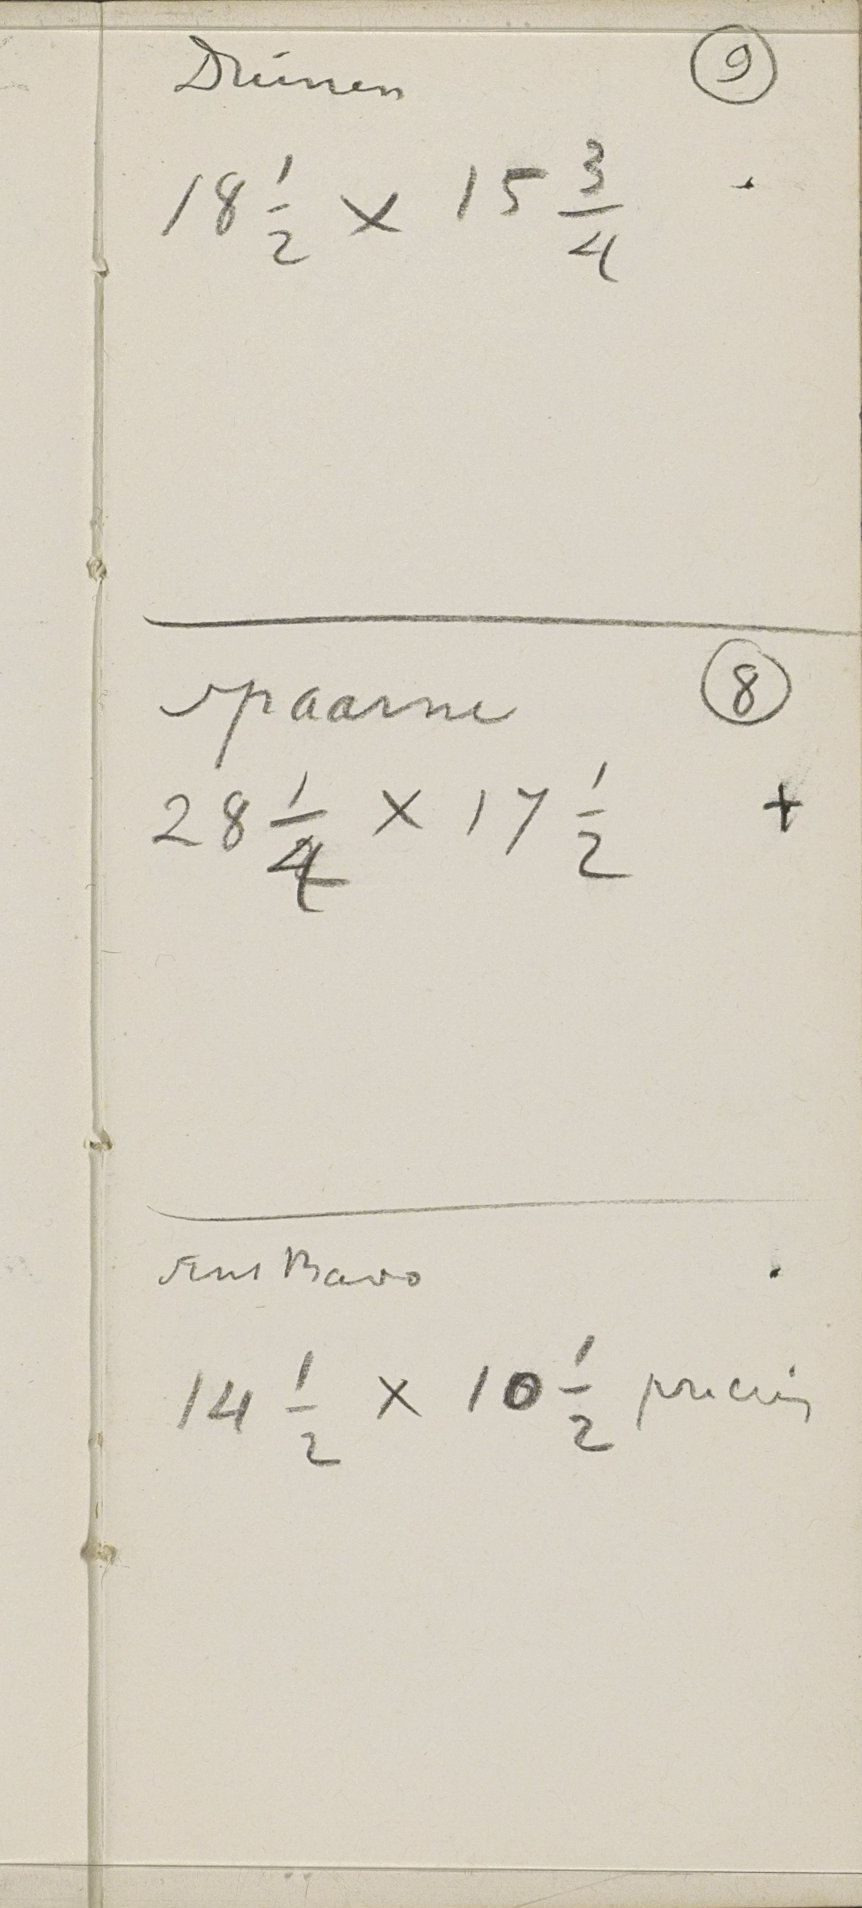 Duinen 9
18 1/2 × 15 3/4
spaarne 8
28 1/4 × 17 1/2 +
sint Bavo
14 1/2 × 10 1/2 precies